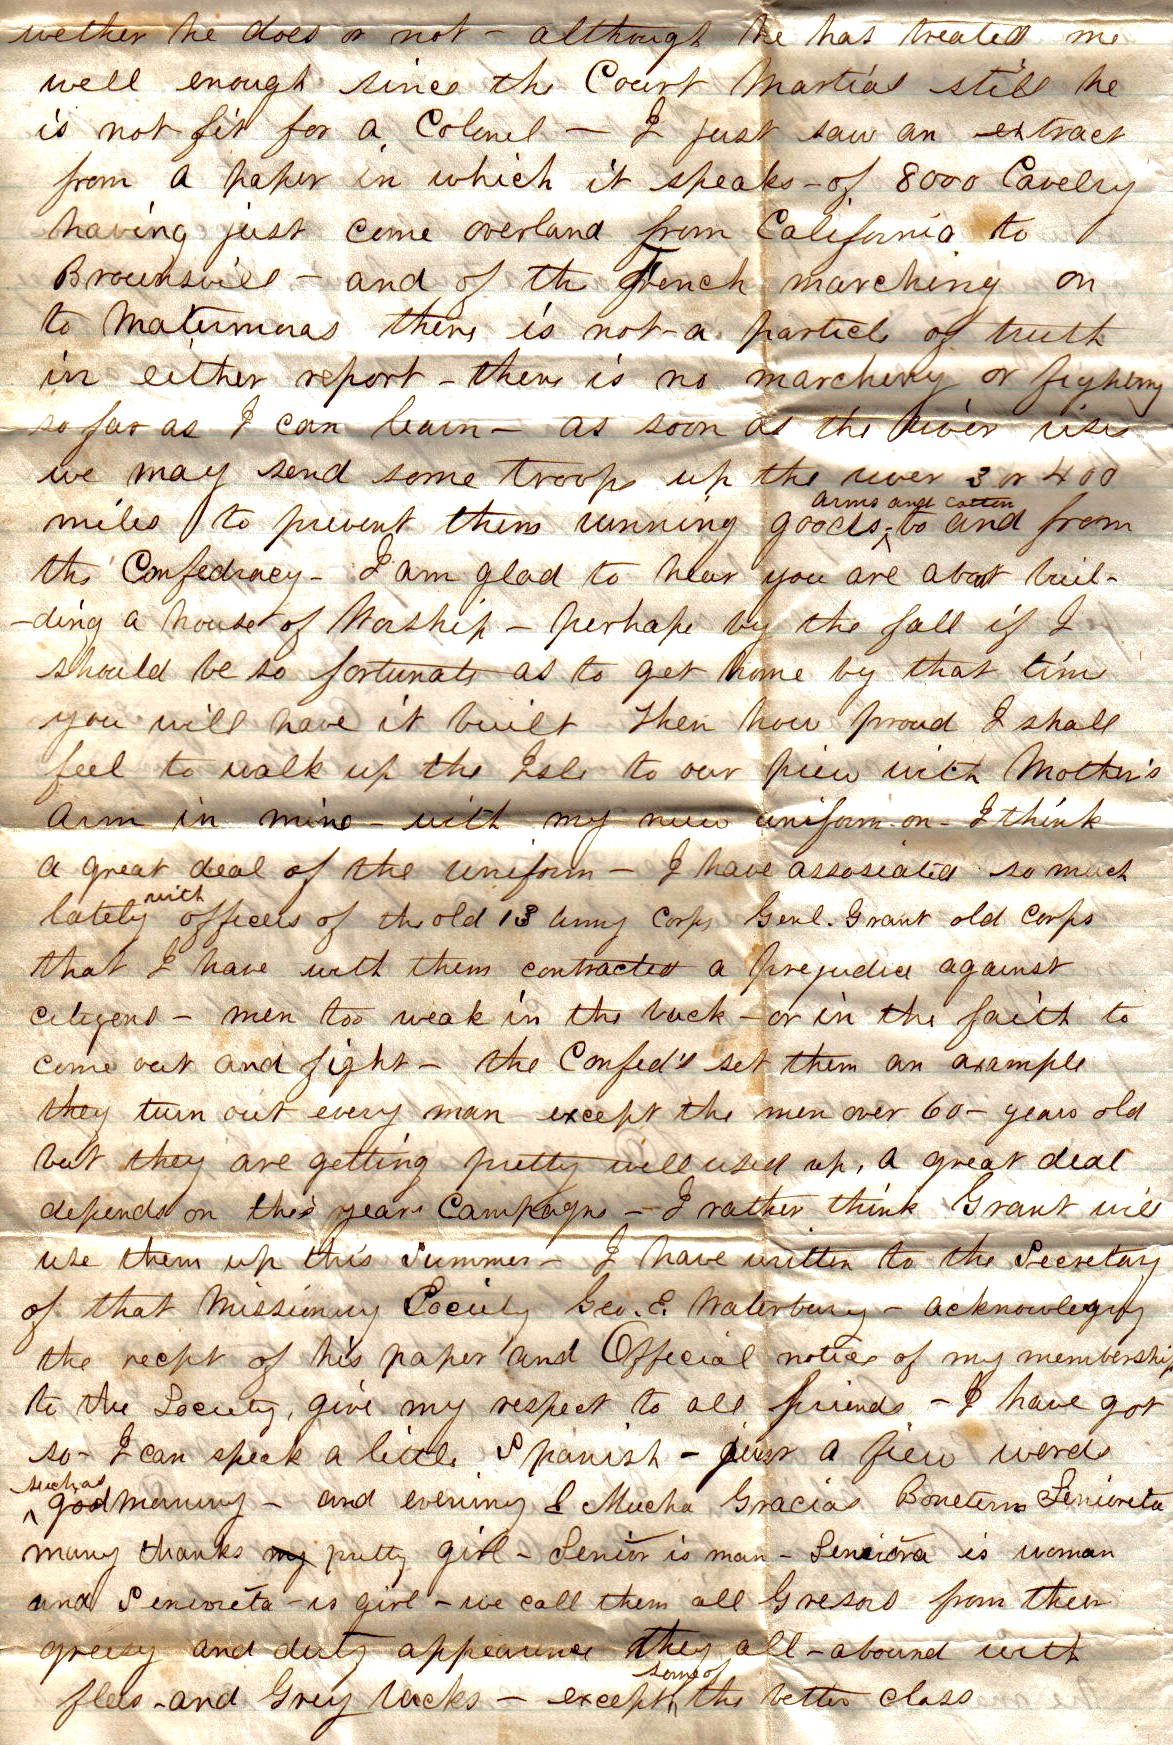 wether he does or not - although he has treated me
well enough since the Court Martial still he
is not fit for a Colonel - I just saw an extract
from a paper in which it speaks - of 8000 Cavelry
having just come overland from California to
Brownsvill - and of the French marching on
to Matamoras there is not a particle of truth
in either report - there is no marching or fighting
so far as I can learn - as soon as the river rise
we may send some troops up the river 3 or 400
miles to prevent them running goods, ^arms and cotten to and from
the Confedracy - I am glad to hear you are about buil-
-ding a house of Worship - perhaps by the fall if I
should be so fortunate as to get home by that time
you will have it built then how proud I shall
feel to walk up the Isle to our piew with Mother's
arm in mine - with my new uniform on - I think
a great deal of the uniform - I have assosiated so much
lately with officers of the old 13 Army Corps Genl. Grant old Corps
that I have with them contracted a prejudice against
citizens - men too weak in the back - or in the faith to
come out and fight - the Confed's set them an axample
they turn out every man except the men over 60 - years old
but they are getting pretty well used up, a great deal
depends on this years Campaign - I rather think Grant will
use them up this Summer - I have written to the Secretary
of that Missionary Society Geo. E. Waterbury - acknowleging
the recipt of his paper and Official notice of my membership
to the Society, give my respect to all friends - I have got
so - I can speak a little Spanish - just a fiew words
^such as good morning - and evening & Mucha Gracias Boneterna Senioreta
many thanks my pretty girl - Senior is man - Seniora is woman
and Senioreta - is girl - we call them all Gresors from their
greesy and dirty appearance they all - abound with
flees - and Grey backs - except ^some of the better class